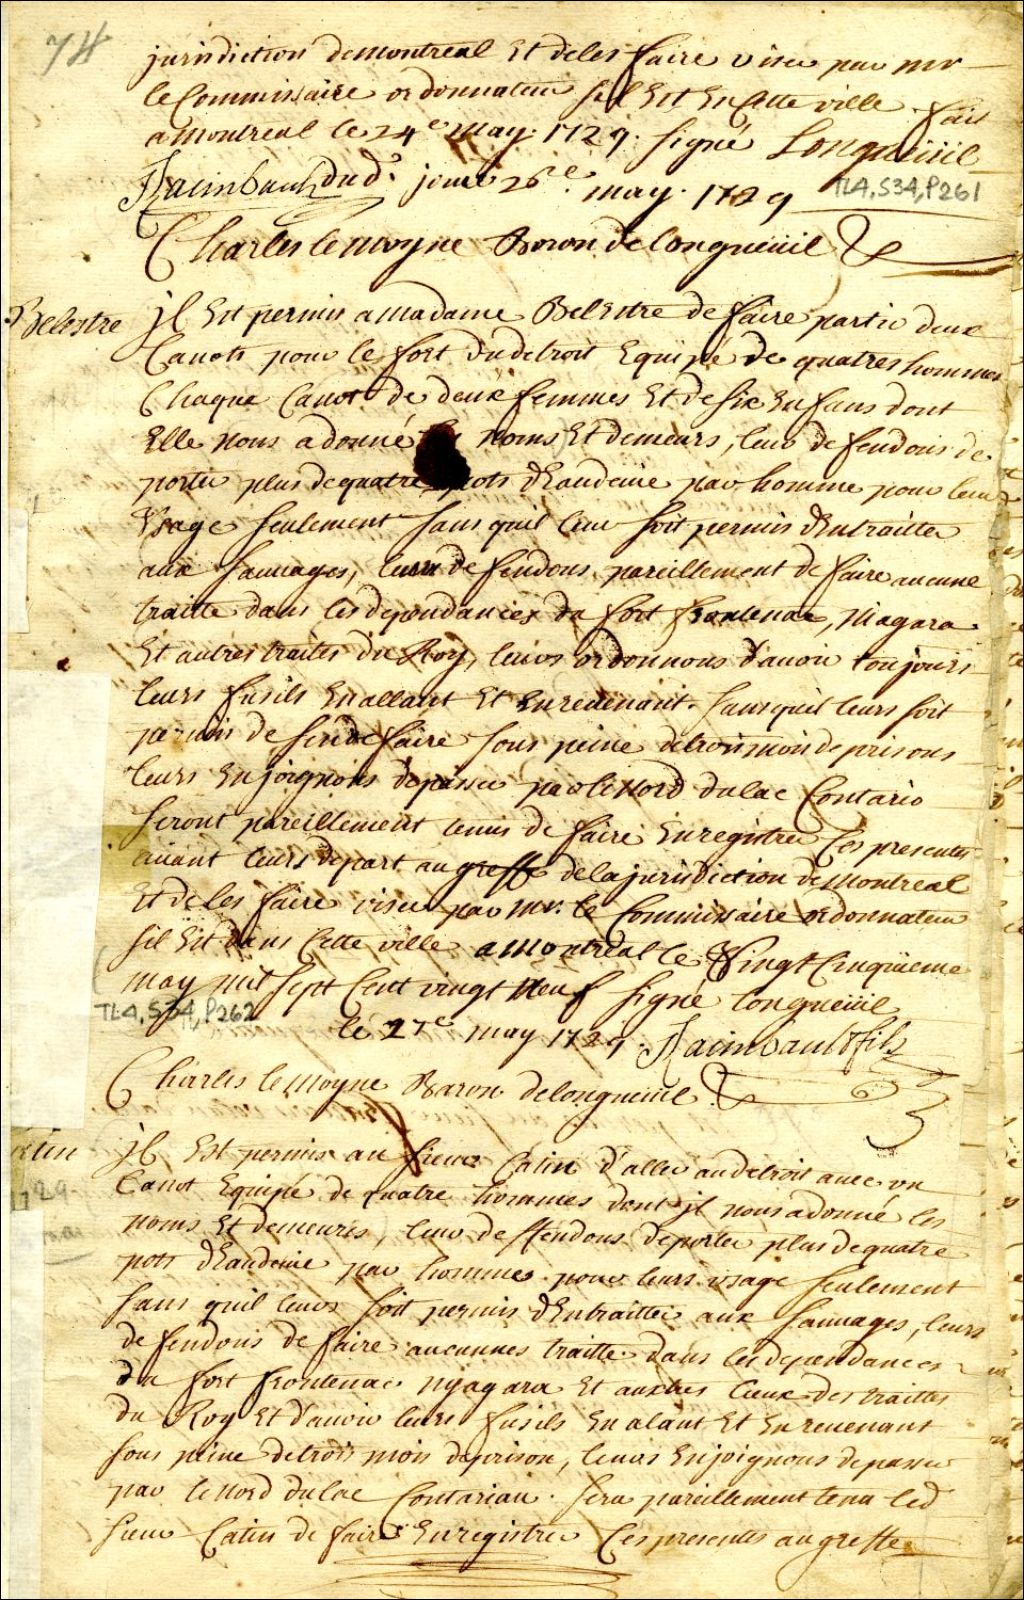 74
jurisdiction de montreal Et de les faire viser par mr
le Commissaire ordonnateur sil Est En Cette ville. fait
a montreal le 24e may. 1729. signé Longueüil
Raimbault dud. jour 26e. may. 1729
TL4,S34,P261
Charles le moyne Baron de longueüil
Belestre
jl Est permis a madame BelEstre de faire partir deux
Canots pour le fort du detroit Equipé de quatres hommes
Chaque Canot de deux femmes Et de six Enfans dont
Elle nous a donné noms Et demeurs, leur defendons de
porter plus de quatre pots dEaudevie par homme pour leur
Vsage seulement sans quil leur soit permis dEntraitter
aux sauvages, leurs defendons pareillement de faire aucune
traitte dans les dependances du fort frontenac, Niagara
Et autres traites du Roy, leurs ordonnons d'avoir toujours
leurs fusils En allant Et En revenant. sans quil leurs soit
permis de sen defaire sous peine de trois mois de prisons
leurs Enjoignons de passer par le Nord du lac Contario
seront pareillement tenus de faire Enregistrer Ces presentes
avant leurs depart au greffe de la jurisdiction de Montreal
Et de les faire viser par Mr. le Commissaire ordonnateur
sil Est dans Cette ville a Montréal le Vingt Cinquieme
may mil sept Cent vingt Neuf signé longueüil
TL4,S34,P262
le 27e may 1729. Raimbault fils
Charles le Moyne Baron de longueüil
atin
1729
jl Est permis au sieur Catin d'aller au detroit avec vn
Canot Equipé de quatre hommes dont jl nous a donné les
noms Et demeures, leur deffendons de porter plus de quatre
pots dEaudevie par hommes pour leurs vsage seulement
sans quil leurs soit permis dEntraitter aux sauvages, leurs
defendons de faire aucunnes traitte dans les dependances
du fort frontenac nyagara Et auttres lieux des traittes
du Roy Et d'avoir leurs fusils En alant Et En revenant
sous peine de trois mois de prison, leurs Enjoignons de passer
par le Nord du lac Contariau. sera pareillement tenu led
sieur Catin de faire Enregistrer Ces presentes au greffe